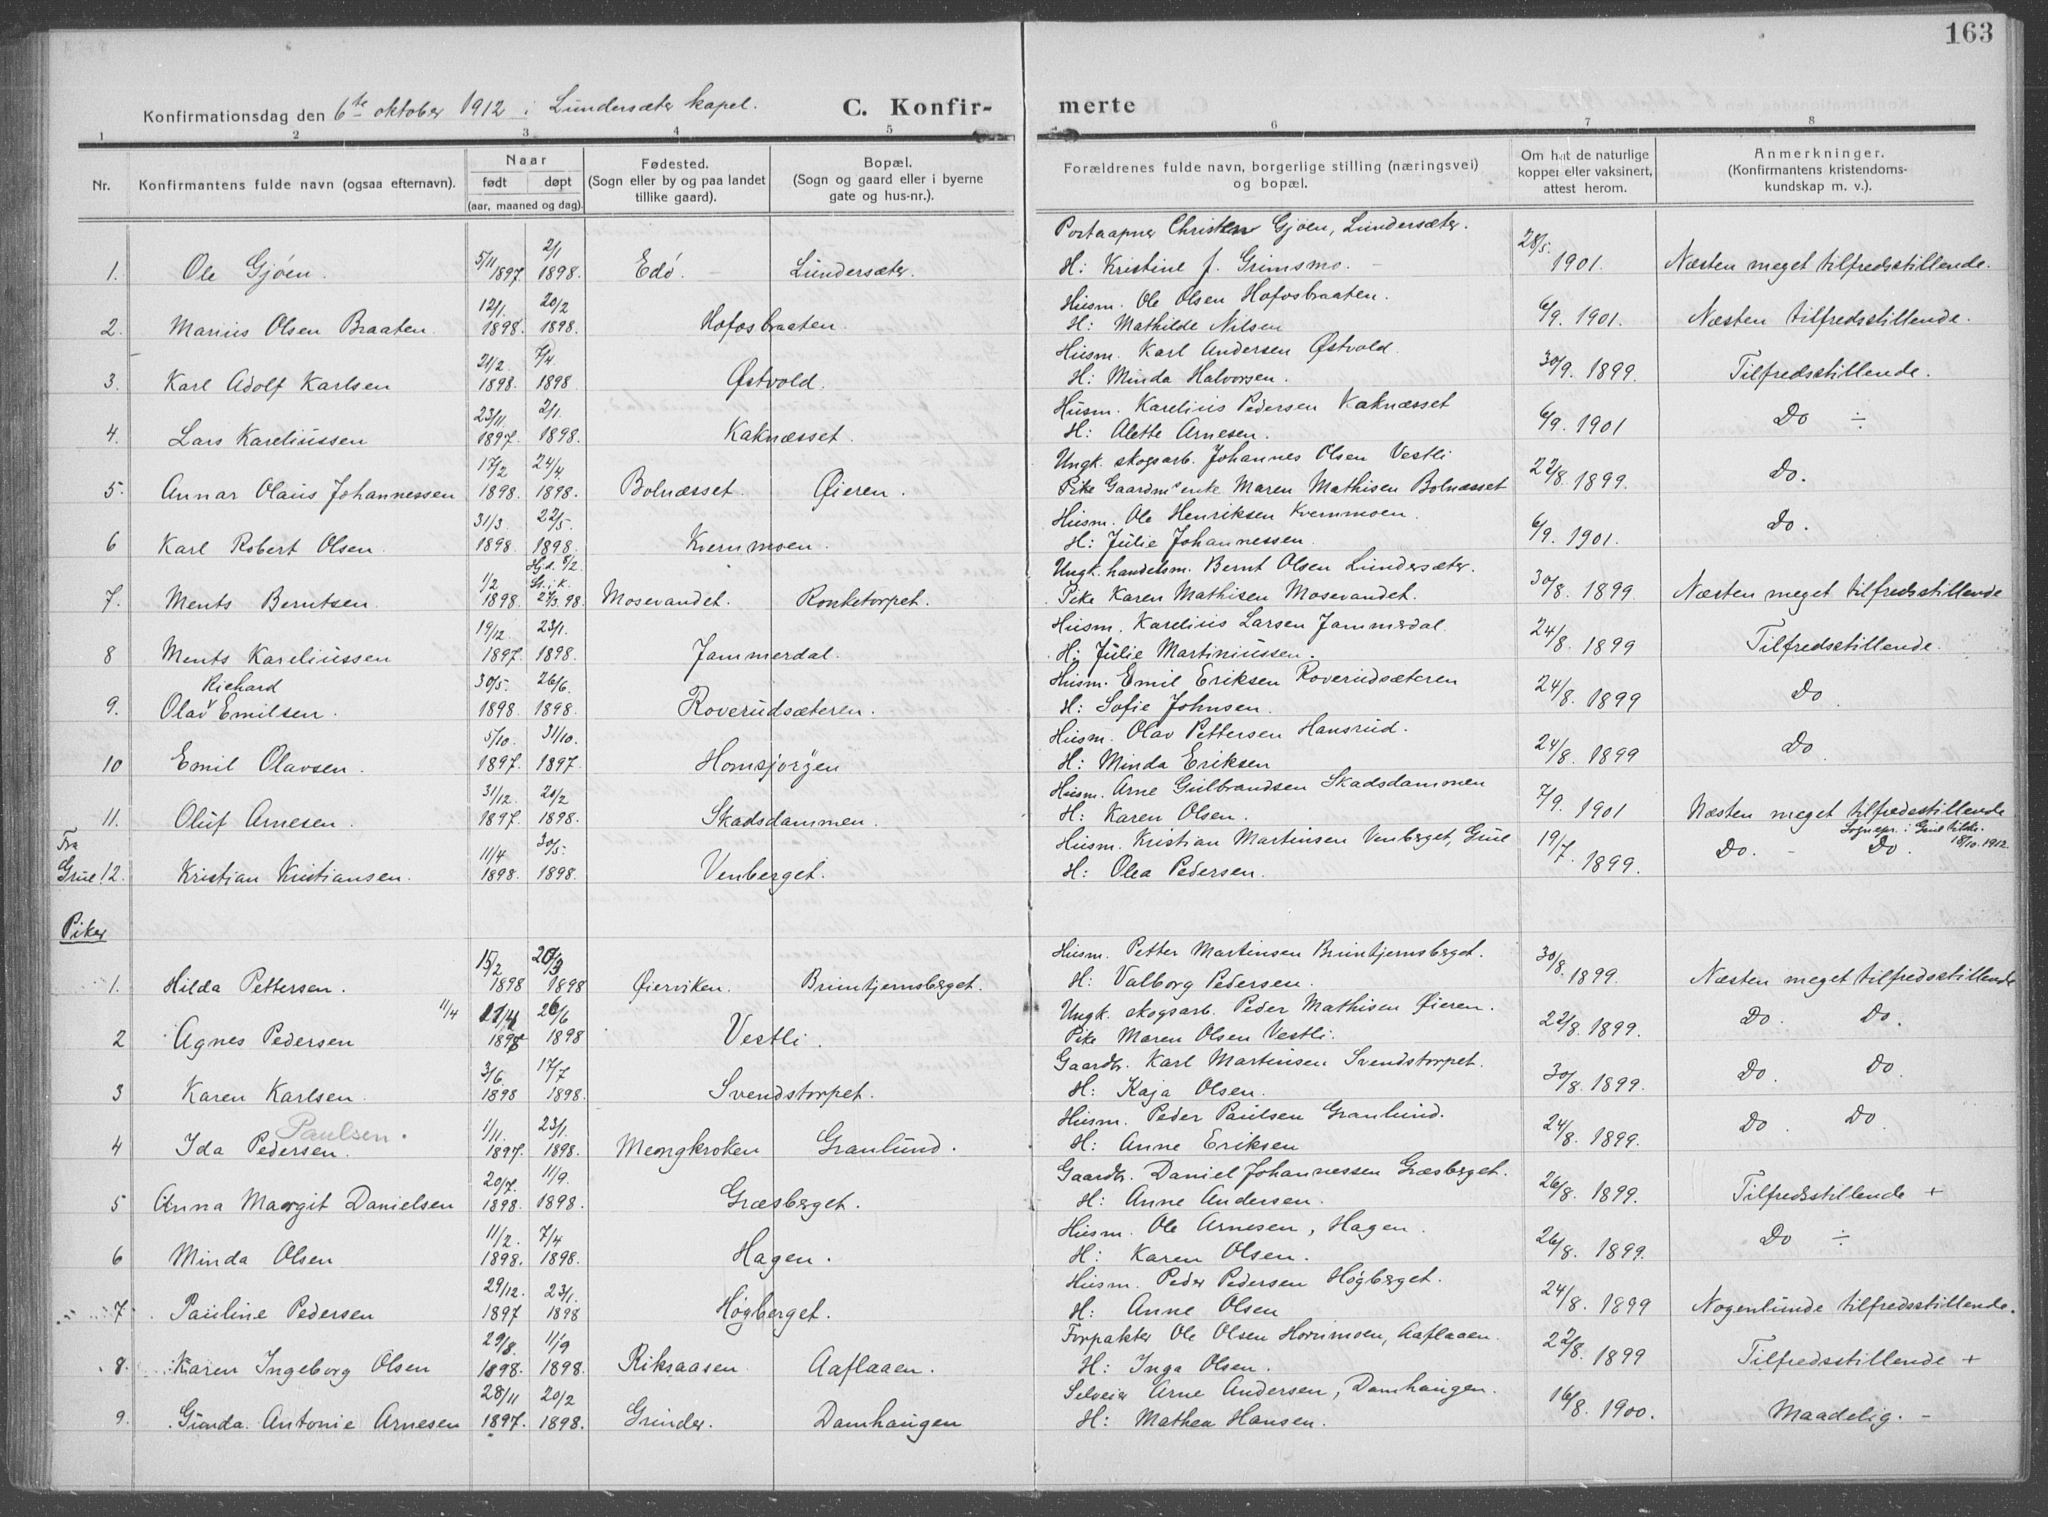 163
Konfirmationsdag den 6te oktober 1912 i Lundersæter kapel.
C. Konfirmerte
1 2 3 4 5 6 7 8
Nr.
Konfirmantens fulde navn (ogsaa efternavn).
Naar
født døpt
(aar, maaned og dag).
Fødested.
(Sogn eller by og paa landet
tillike gaard).
Bopæl.
(Sogn og gaard eller i byerne
gate og hus-nr.).
Forældrenes fulde navn, borgerlige stilling (næringsvei)
og bopæl.
Om hat de naturlige
kopper eller vaksinert,
attest herom.
Anmerkninger.
(Konfirmantens kristendoms-
kundskap m. v.).
5/11 2/1 Postaapner Christen Gjøen, Lundersæter. 28/5.
1. Ole Gjøen. 1897. 1898. Edø. – Lundersæter. H: Kristine J. Grimsmo. – 1901. Næsten meget tilfredsstillende.
12/1. 20/2 Husm. Ole Olsen Hofosbraaten.
2. Marius Olsen Braaten. 1898. 1898. Hofosbraaten. H: Mathilde Nilsen 6/9. 1901. Næsten tilfredsstillende.
21/2 7/4. Husm. Karl Andersen Østvold.
3. Karl Adolf Karlsen 1898. 1898 Østvold. H: Minda Halvorsen. 30/9. 1899. Tilfredsstillende.
23/11. 2/1. Husm. Karelius Pedersen Kaknæsset
4. Lars Kareliussen 1897. 1898. Kaknæsset. H: Alette Arnesen. 6/9. 1901 Do ÷
17/2 24/4. Ungk. skogsarb. Johannes Olsen Vestli
5. Annar Olaus Johannessen 1898. 1898. Bolnæsset. Øieren. Pike Gaardm's enke Maren Mathisen Bolnæsset 22/8. 1899. Do.
31/3. 22/5. Husm. Ole Henriksen Kvernmoen.
6 Karl Robert Olsen. 1898. 1898. Kvernmoen. H: Julie Johannessen. 6/9. 1901. Do.
1/2 Hj.d. 6/2 St. i k. Ungk. handelsm. Bernt Olsen Lundersæter.
7. Ments Berntsen. 1898. 27/3. 98. Mosevandet. Ronketorpet. Pike Karen Mathisen Mosevandet. 30/8. 1899 Næsten meget tilfredsstillende
19/12. 23/1. Husm. Karelius Larsen Jammerdal.
8 Ments Kareliussen 1897. 1898. Jammerdal. H: Julie Martiniussen. 24/8. 1899 Tilfredsstillende.
Richard 30/5. 26/6. Husm. Emil Eriksen Roverudsæteren
9. Olav Emilsen. 1898. 1898. Roverudsæteren. H: Sofie Johnsen. 24/8. 1899 Do
5/10. 31/10. Husm. Olav Pettersen Hansrud.
10 Emil Olavsen. 1897. 1897. Homsjørgen H: Minda Eriksen 24/8. 1899 Do
31/12. 20/2 Husm. Arne Gulbrandsen Skadsdammen
11. Oluf Arnesen. 1897. 1898. Skadsdammen. H: Karen Olsen. 7/9. 1901 Næsten meget tilfredsstillende
Fra 11/4 30/5. Husm. Kristian Martinsen Venberget, Grue 19/7. Sognepr. i Grue tilds. 18/10. 1912.
Grue 12. Kristian Kristiansen. 1898. 1898. Venberget. H: Olea Pedersen. 1899. Do. – Do.
Piker
15/2 20/3 Husm. Petter Martinsen Bruntjernsberget. 30/8.
1. Hilda Pettersen. 1898 1898 Øierviken. Bruntjernsberget. H: Valborg Pedersen. 1899. Næsten meget tilfredsstillende
11/4 26/6 Ungk. skogsarb. Peder Mathisen Øieren.
2 Agnes Pedersen 1898 1898 Vestli. Pike Maren Olsen Vestli. 22/8. 1899. Do. Do.
3/6. 17/7 Gaardbr. Karl Martinsen Svendstorpet.
3 Karen Karlsen. 1898 1898. Svendstorpet. H: Kaja Olsen. 30/8. 1899. Do. Do.
Paulsen. 1/11. 23/1. Husm. Peder Paulsen Granlund.
4 Ida Pedersen. 1897. 1898. Meongkroken Granlund. H: Anne Eriksen 24/8. 1899. Do. Do.
20/7. 11/9. Gaardbr. Daniel Johannessen Græsberget.
5 Anna Margit Danielsen 1898. 1898. Græsberget. H: Anne Andersen. 26/8. 1899. Tilfredsstillende +
11/2. 7/4 Husm. Ole Arnesen, Hagen.
6 Minda Olsen 1898. 1898. Hagen. H: Karen Olsen. 26/8. 1899. Do ÷
29/12. 23/1. Husm. Peder Pedersen Høgberget.
7 Pauline Pedersen 1897 1898 Høgberget. H: Anne Olsen 24/8. 1899 Nogenlunde tilfredsstillende.
29/8. 11/9 Forpakter Ole Olsen Hornmoen, Aaflaaen.
8. Karen Ingeborg Olsen 1898. 1898. Riksaasen Aaflaaen. H: Inga Olsen. 22/8. 1899 Tilfredsstillende +
28/11 20/2 Selveier Arne Andersen, Damhaugen.
9. Gunda Antonie Arnesen 1897. 1898. Grinder. Damhaugen H: Mathea Hansen. 16/8. 1900. Maadelig. –